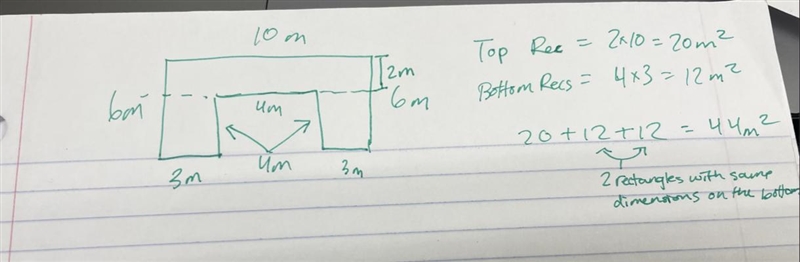 10 m
2m
6m
4m
6m
4m
3m
3m
Top Rec = 2x10 = 20m²
Bottom Recs = 4x3 = 12m²
20+12+12 = 44m²
2 rectangles with same
dimensions on the bottom